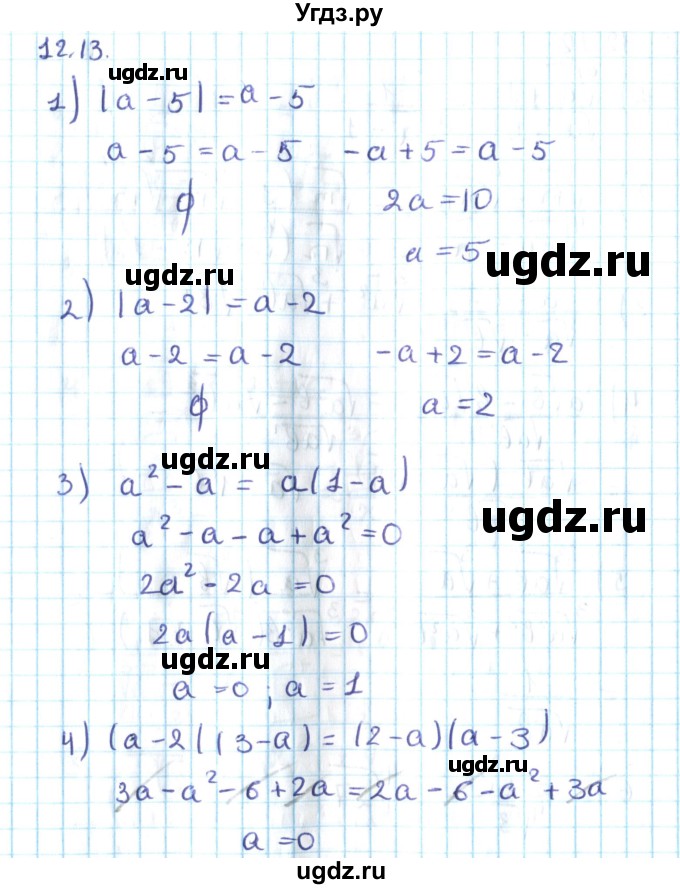 Угдз.ру
12.13.
ugdz.ru
1) |a - 5| = a - 5
a - 5 = a - 5   -a + 5 = a - 5
ϕ   2a = 10
a = 5
ugdz.ru
ugdz.ru
2) |a - 2| = a - 2
a - 2 = a - 2   -a + 2 = a - 2
ϕ   a = 2
ugdz.ru
3) a² - a = a(1 - a)
ugdz.ru
a² - a - a + a² = 0
2a² - 2a = 0
2a(a - 1) = 0
ugdz.ru
a = 0 ; a = 1
4) (a - 2)(3 - a) = (2 - a)(a - 3)
ugdz.ru
3a - a² - 6 + 2a = 2a - 6 - a² + 3a
a = 0
ugdz.ru